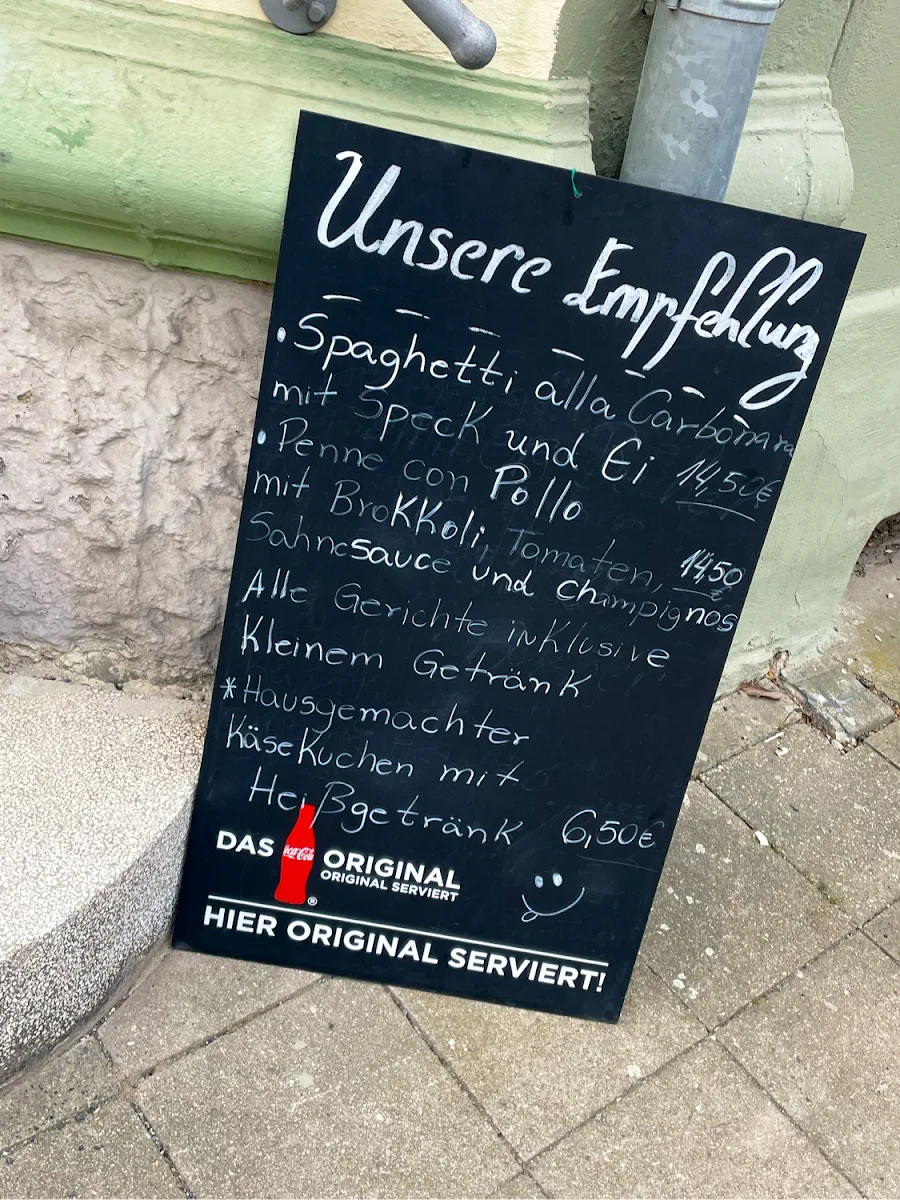 Unsere Empfehlung
• Spaghetti alla Carbonara
mit Speck und Ei 14,50€
• Penne con Pollo
mit Brokkoli, Tomaten, 14,50€
Sahnesauce und Champignos
Alle Gerichte inklusive
Kleinem Getränk
*Hausgemachter
Käsekuchen mit
Heißgetränk 6,50€
DAS Coca-Cola ORIGINAL
ORIGINAL SERVIERT
®
HIER ORIGINAL SERVIERT!